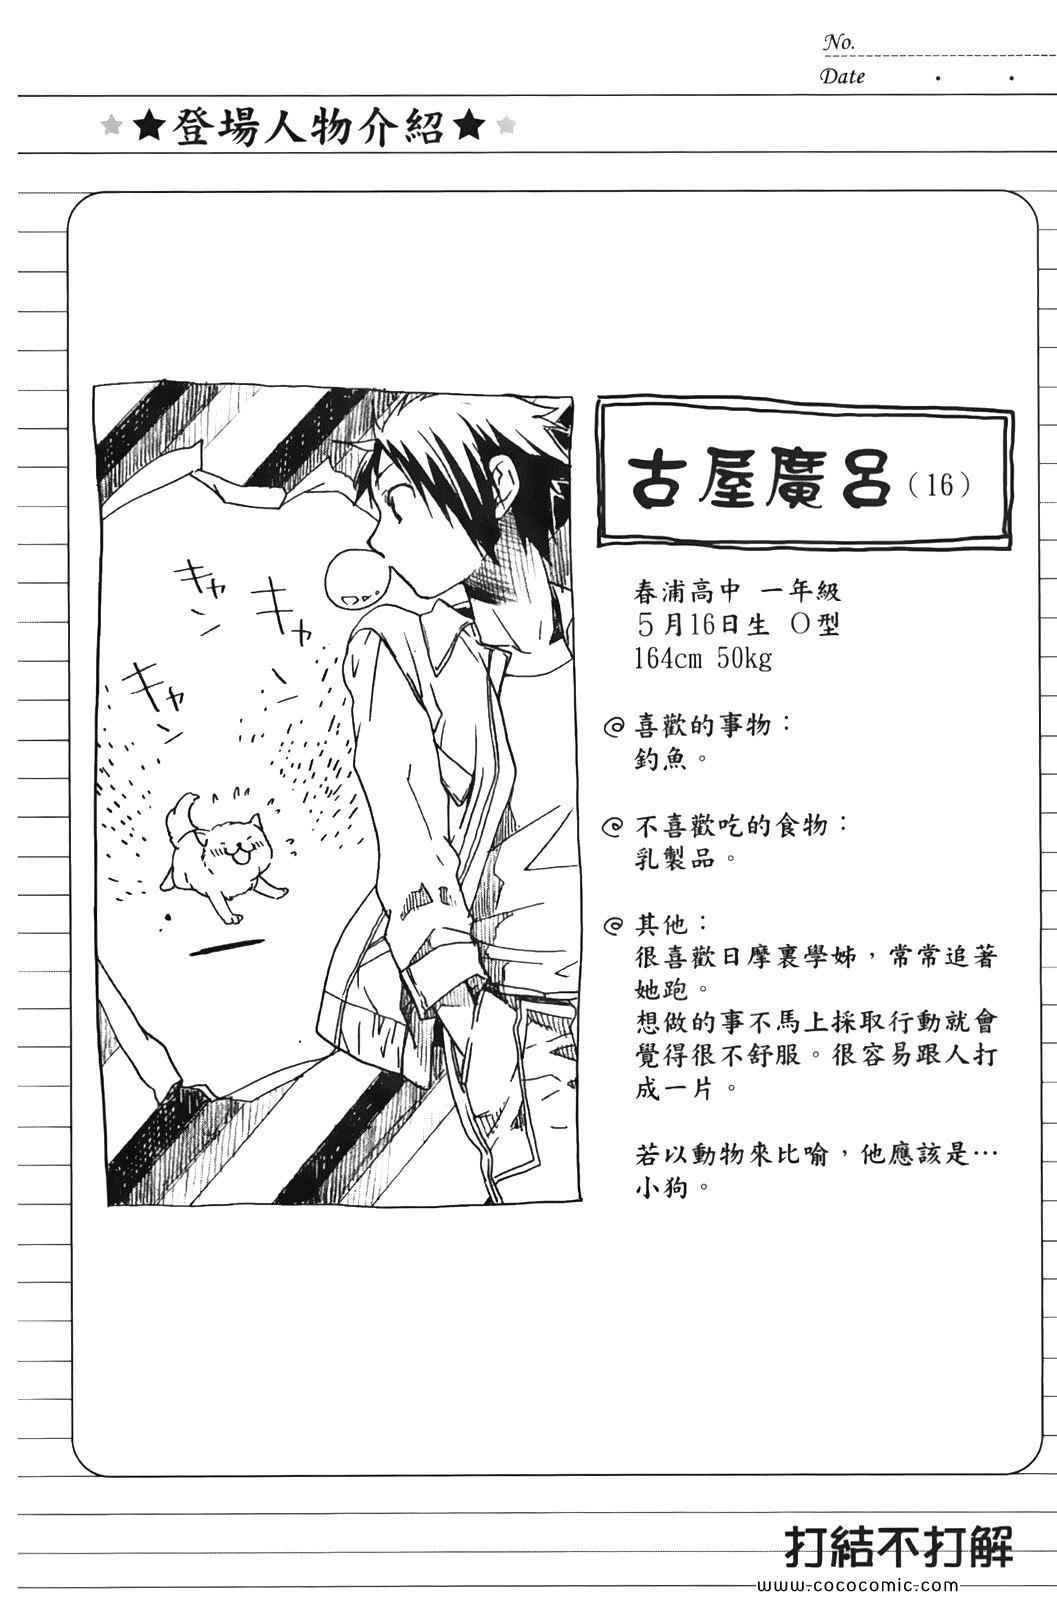 No.
Date
★★登場人物介紹★★
古屋廣呂（16）
春浦高中 一年級
５月16日生 Ｏ型
164cm 50kg
喜歡的事物：
釣魚。
不喜歡吃的食物：
乳製品。
其他：
很喜歡日摩裏學姊，常常追著
她跑。
想做的事不馬上採取行動就會
覺得很不舒服。很容易跟人打
成一片。
若以動物來比喻，他應該是…
小狗。
キャ
キャ
キャ
打結不打解
www.cococomic.com